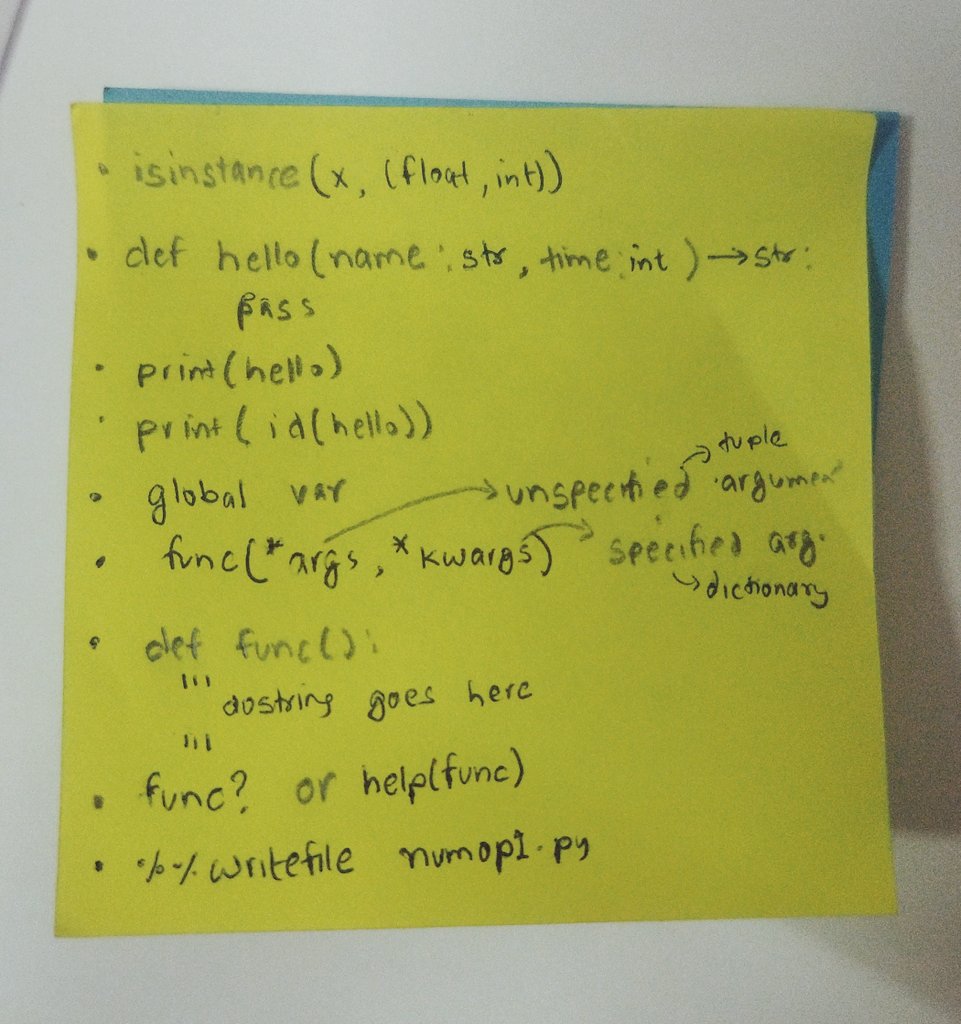 • isinstance(x, (float, int))
• def hello(name: str, time: int) → str:
pass
• print(hello)
• print(id(hello))
→ tuple
• global var → unspecified argumen
• func(*args, *kwargs) → specified arg.
→ dictionary
• def func():
'''
dostring goes here
'''
• func? or help(func)
• %%writefile numop1.py